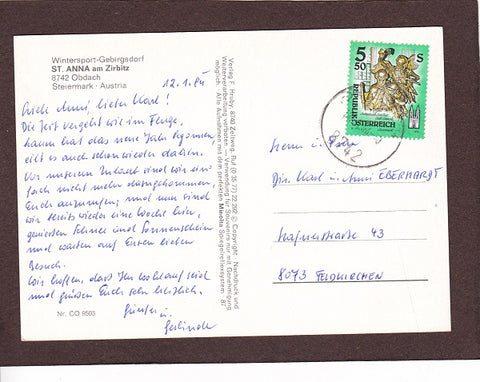 Wintersport-Gebirgsdorf
ST. ANNA am Zirbitz
8742 Obdach
Steiermark · Austria
12.1.94
lieber Karl!
Die Zeit vergeht wie im Fluge,
kaum hat das neue Jahr begonnen,
eilt es auch schon wieder dahin.
Vor unserem Urlaub sind wir ein-
fach nicht mehr dazugekommen,
Euch anzurufen; und nun sind
wir bereits wieder eine Woche hier,
genießen Schnee und Sonnenschein
und warten auf Euren lieben
Besuch.
Wir hoffen, dass Ihr wohlauf seid
und grüßen Euch sehr herzlich.
Günter u.
Gerlinde
Nr. CO 9503
Verlag F. Hruby, 8740 Zeltweg, Ruf (0 35 77) 22 282 © Copyright · Nachdruck und
Weiterverarbeitung verboten. — Verwendung für Stereoserie nur mit Genehmigung
möglich. Alle Aufnahmen mit dem perfekten Minolta Spiegelreflexsystem · 87
5 50 S
REPUBLIK
ÖSTERREICH
8742
Herrn u. Frau
Karl u. Anni EBERHARDT
Wagnerstrasse 43
8073 FELDKIRCHEN